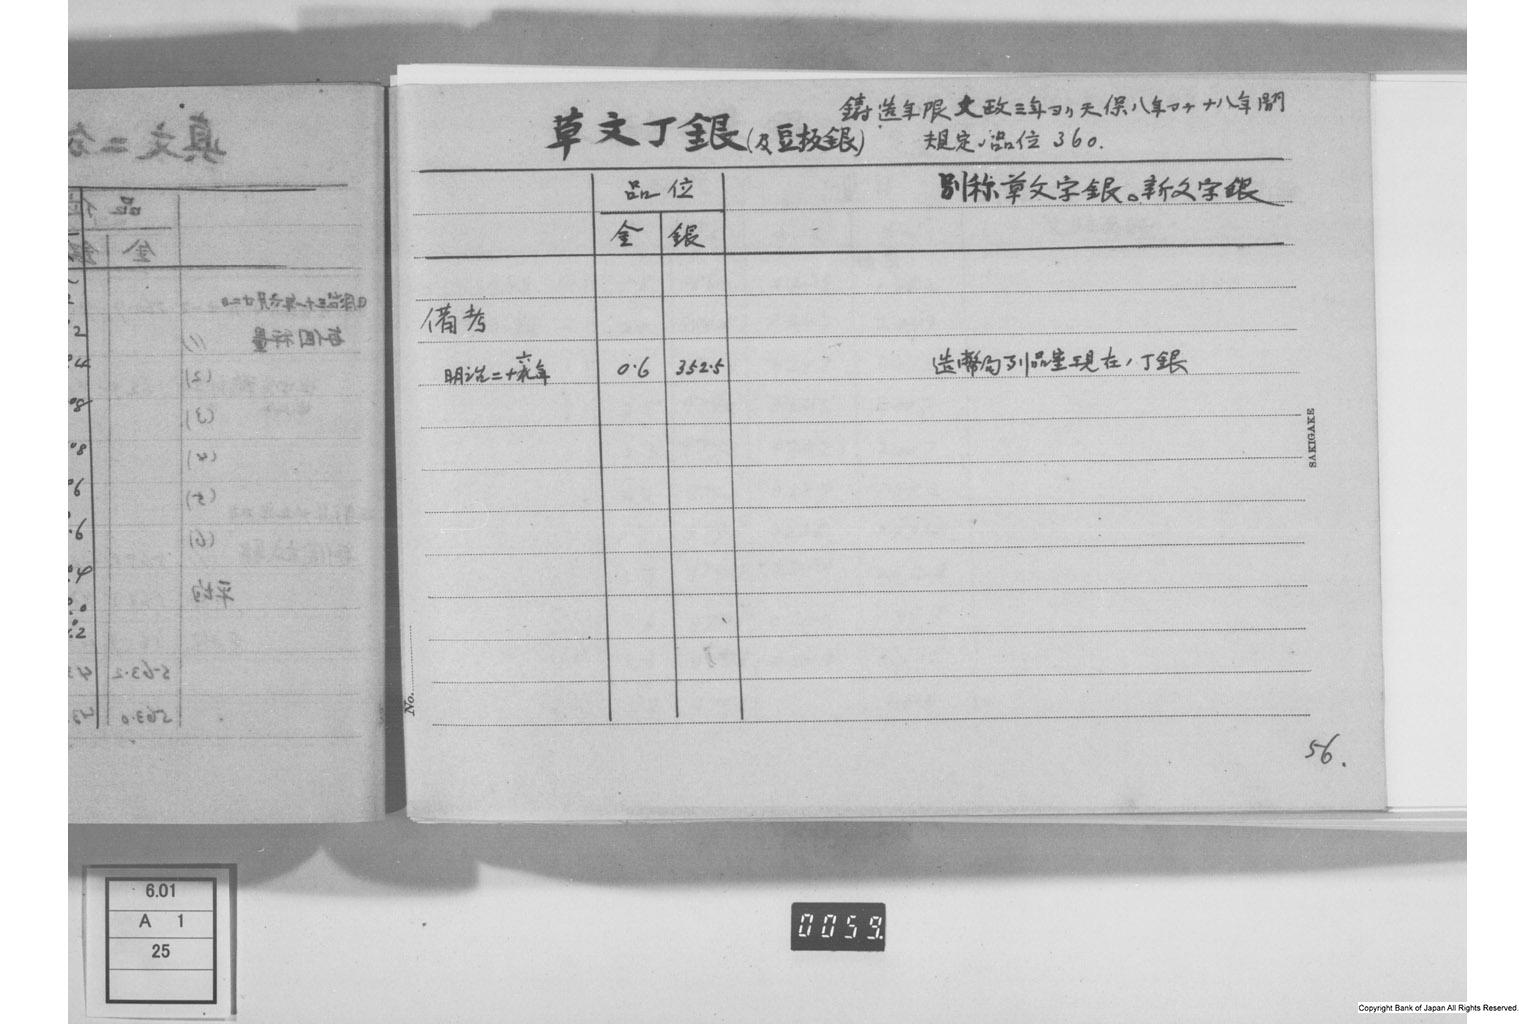 草文丁銀(及豆板銀)
鋳造年限 文政三年ヨリ天保八年マデ十八年間
規定ノ品位 360.
品位
別称草文字銀。新文字銀
金 銀
備考
明治二十六年 0.6 352.5 造幣局列品室現在ノ丁銀
SAKIGAKE
No.
56.
真文二分
品位
金
毎個秤量
(2)
(3)
(4)
(5)
(6)
平均
563.2
563.0
6.01
A 1
25
0059
Copyright Bank of Japan All Rights Reserved.